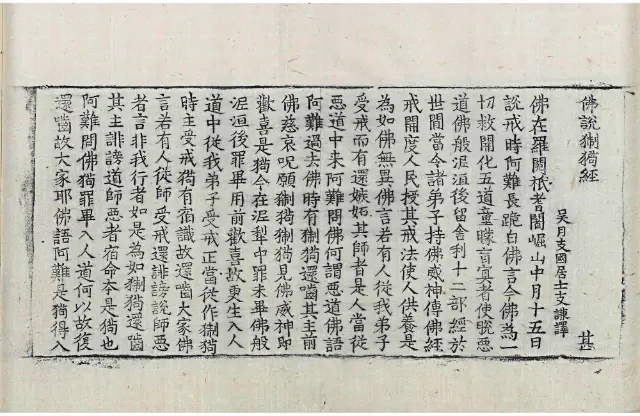 佛說猘狗經 甚
吳月支國居士支謙譯
佛在羅閱祇耆闍崛山中月十五日
說戒時阿難長跪白佛言今佛為一
切救開化五道童矇盲冥者使脫惡
道佛般泥洹後留舍利十二部經於
世間當令諸弟子持佛威神傳佛經
戒開度人民授其戒法使人供養是
為如佛無異佛言若有人從我弟子
受戒而有還嫉妬其師者是人當從
惡道中來阿難問佛何謂惡道佛語
阿難過去佛時有猘狗還嚙其主前
佛慈哀呪願猘狗猘狗見佛威神即
歡喜是狗今在泥犁中罪未畢佛般
泥洹後罪畢用前歡喜故更生入人
道中從我弟子受戒正當從作猘狗
時主受戒狗有宿識故還嚙大家佛
言若有人從師受戒還誹謗說師惡
者言非我行者如是為如猘狗還嚙
其主誹謗道師惡者宿命本是狗也
阿難問佛狗罪畢入人道何以故復
還嚙故大家耶佛語阿難是狗得入